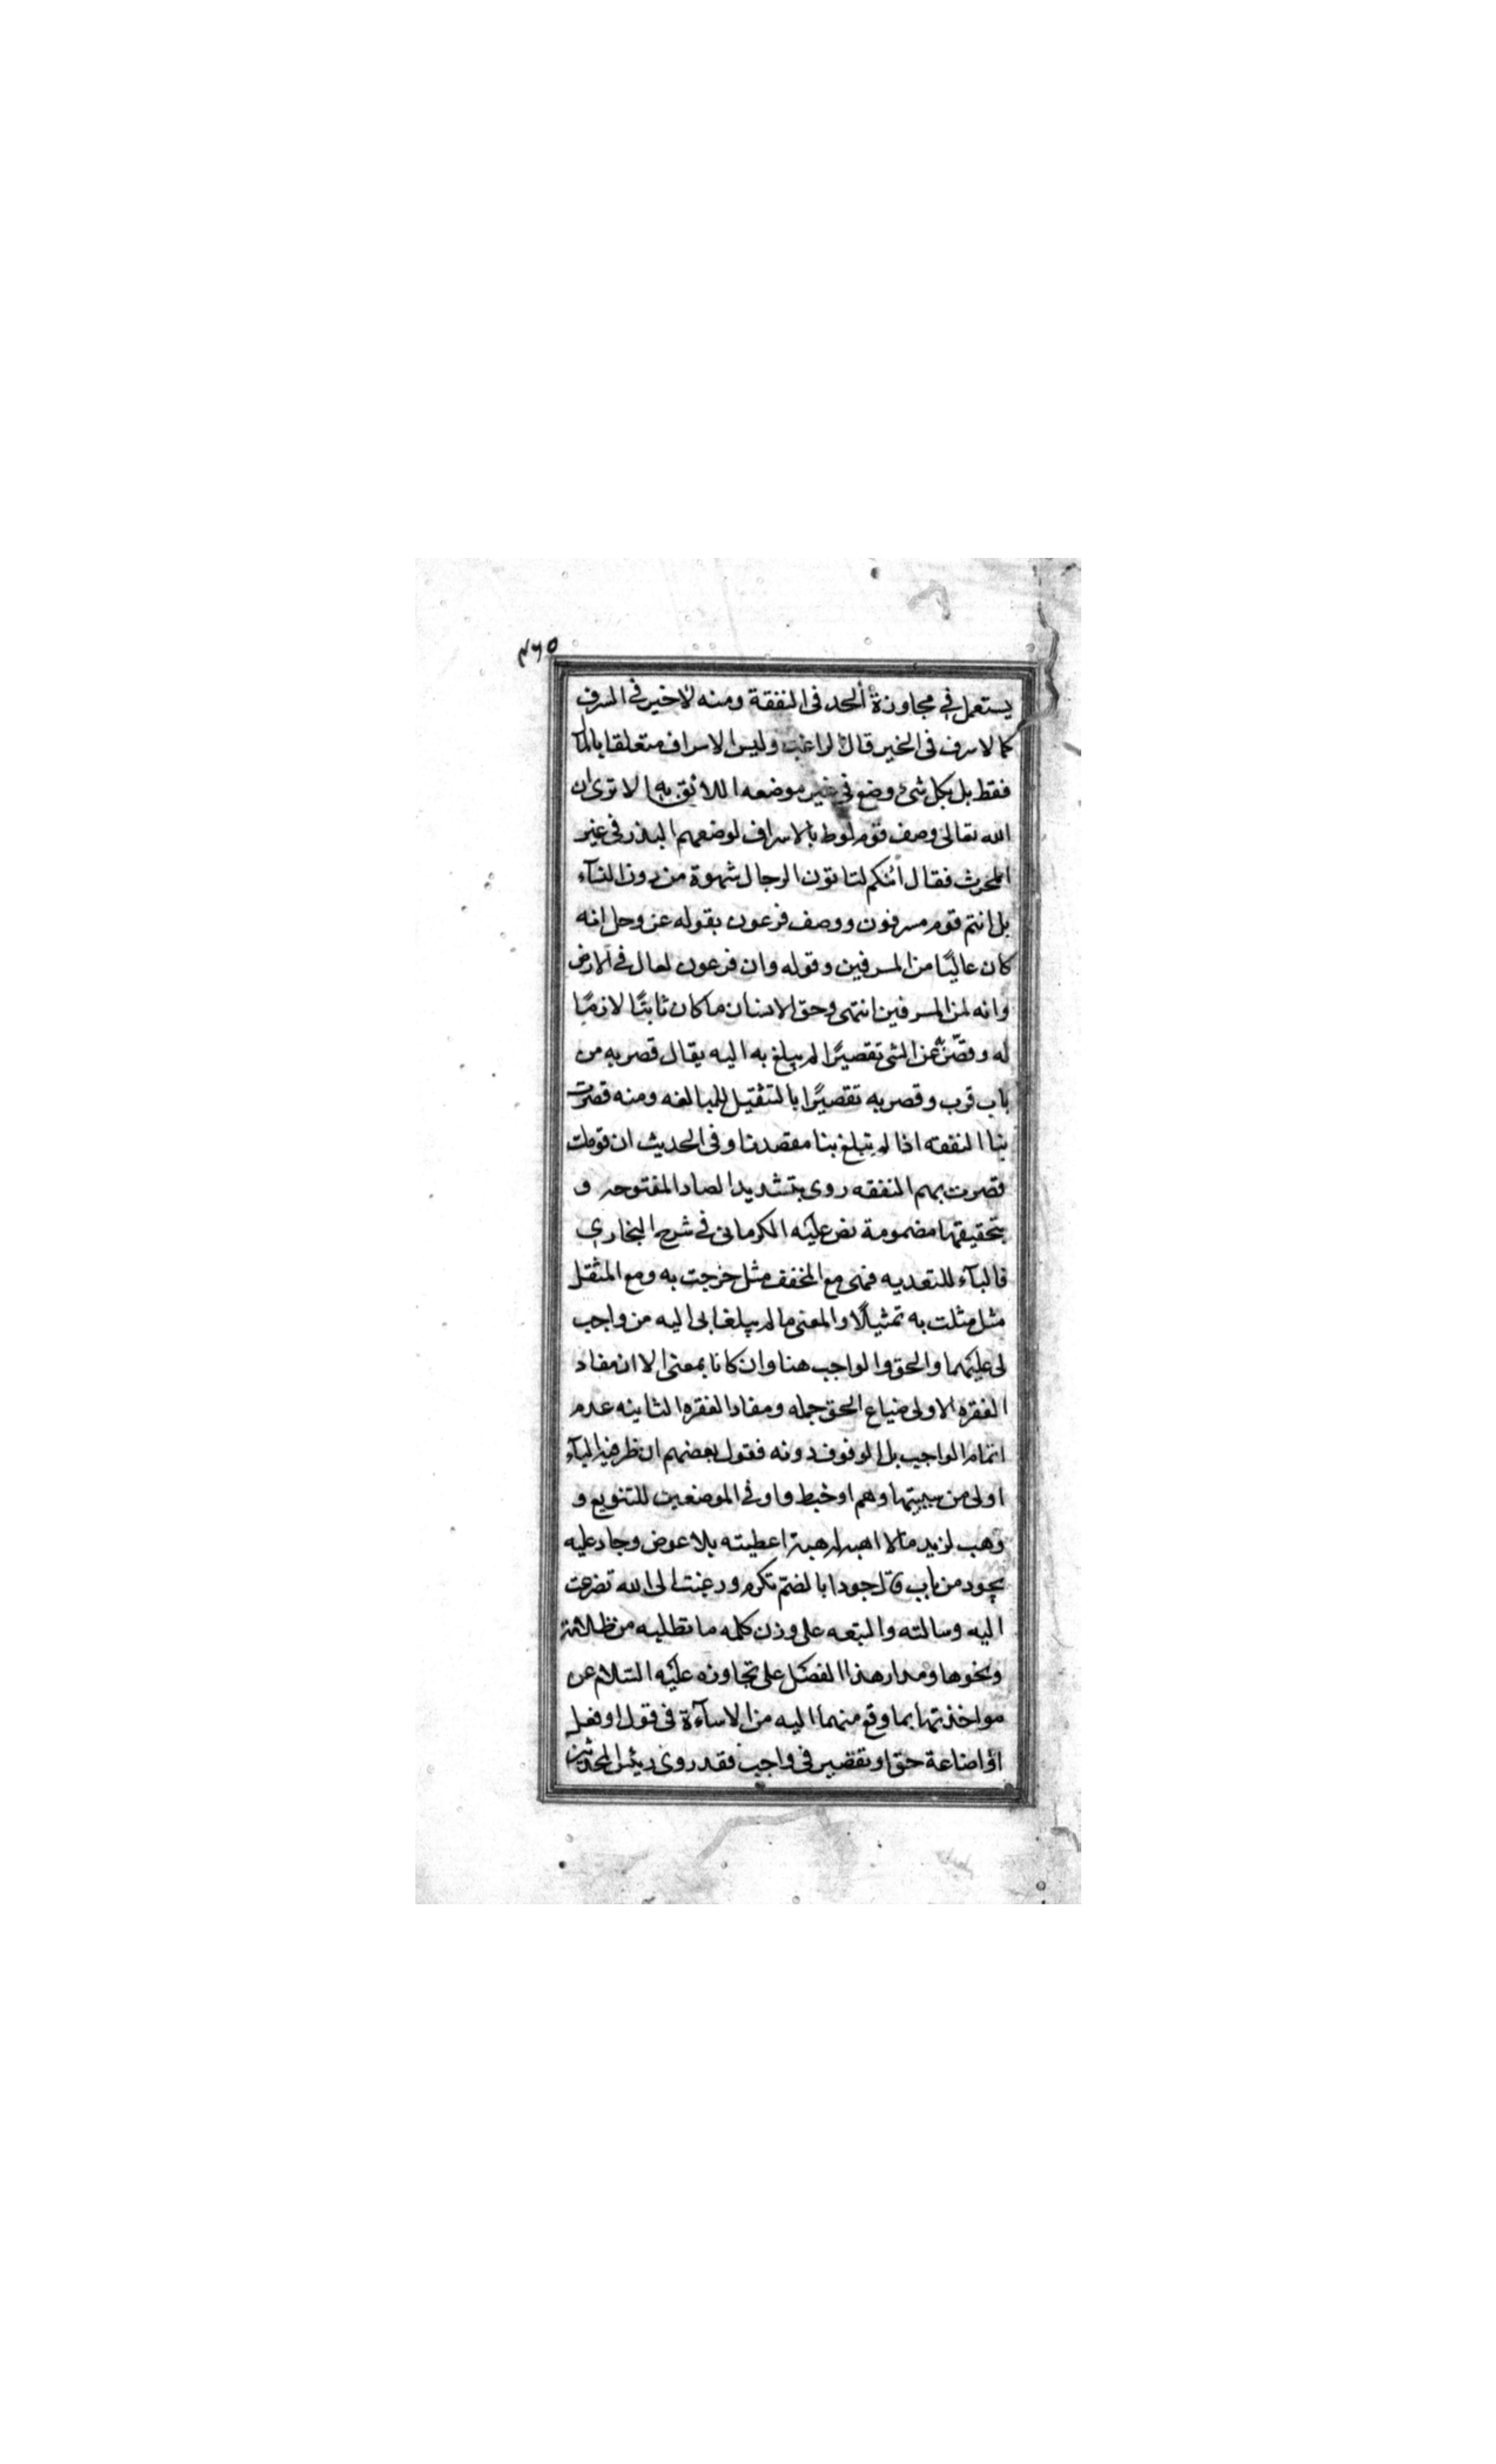 ٤٦٥
يستعمل في مجاوزة ألحد فى النفقة ومنه لاخير فى السرف
كما لاسرف فى الخير قال الراغب وليس الاسراف متعلقا بالمال
فقط بل بكل شئ وضع فى غير موضعه اللائق به الا ترى ان
الله تعالى وصف قوم لوط بالاسراف لوضعهم البذر فى غير
المحرث فقال ائنكم لتاتون الرجال شهوة من دون النسآء
بل انتم قوم مسرفون ووصف فرعون بقوله عز وجل انه
كان عاليًا من المسرفين وقوله وان فرعون لعال فى الارض
وانه لمن المسرفين انتهى وحق الانسان ما كان ثابتًا لازمًا
له وقصّر عن الشى تقصيرًا لم يبلغ به اليه يقال قصر به من
باب قرب وقصر به تقصيرًا بالتثقيل للمبالغه ومنه قصرت
بنا النفقه اذا لم تبلغ بنا مقصدنا وفى الحديث ان قومك
قصرت بهم النفقه روى بتشديد الصاد المفتوحه و
بتحقيقها مضمومة نص عليه الكرمانى فى شرح البخاري
فالبآء للتعديه فهى مع المخفف مثل خرجت به ومع المثقل
مثل مثلت به تمثيلًا والمعنى ما لم يبلغا بى اليه من واجب
لى عليهما والحق والواجب هنا وان كانا بمعنى الا ان مفاد
الفقره الاولى ضياع الحق جمله ومفاد الفقره الثانيه عدم
اتمام الواجب بل الوقوف دونه فقول بعضهم ان ظرفية البآء
اولى من سببيتها وهم او خبط واو فى الموضعين للتنويع و
وهب لزيد مالا اهبه له هبة اعطيته بلا عوض وجاد عليه
يجود من باب قال جودا بالضم تكرم ورغبت الى الله تضرعت
اليه وسالته والتبعه على وزن كلمه ما تطلبه من ظلامة
ونحوها ومدار هذا الفصل على تجاوزه عليه السّلام عن
مواخذتهما بما وقع منهما اليه من الاسآءة فى قول او فعل
او اضاعة حق او تقصير فى واجب فقد روى رئيس المحدثين